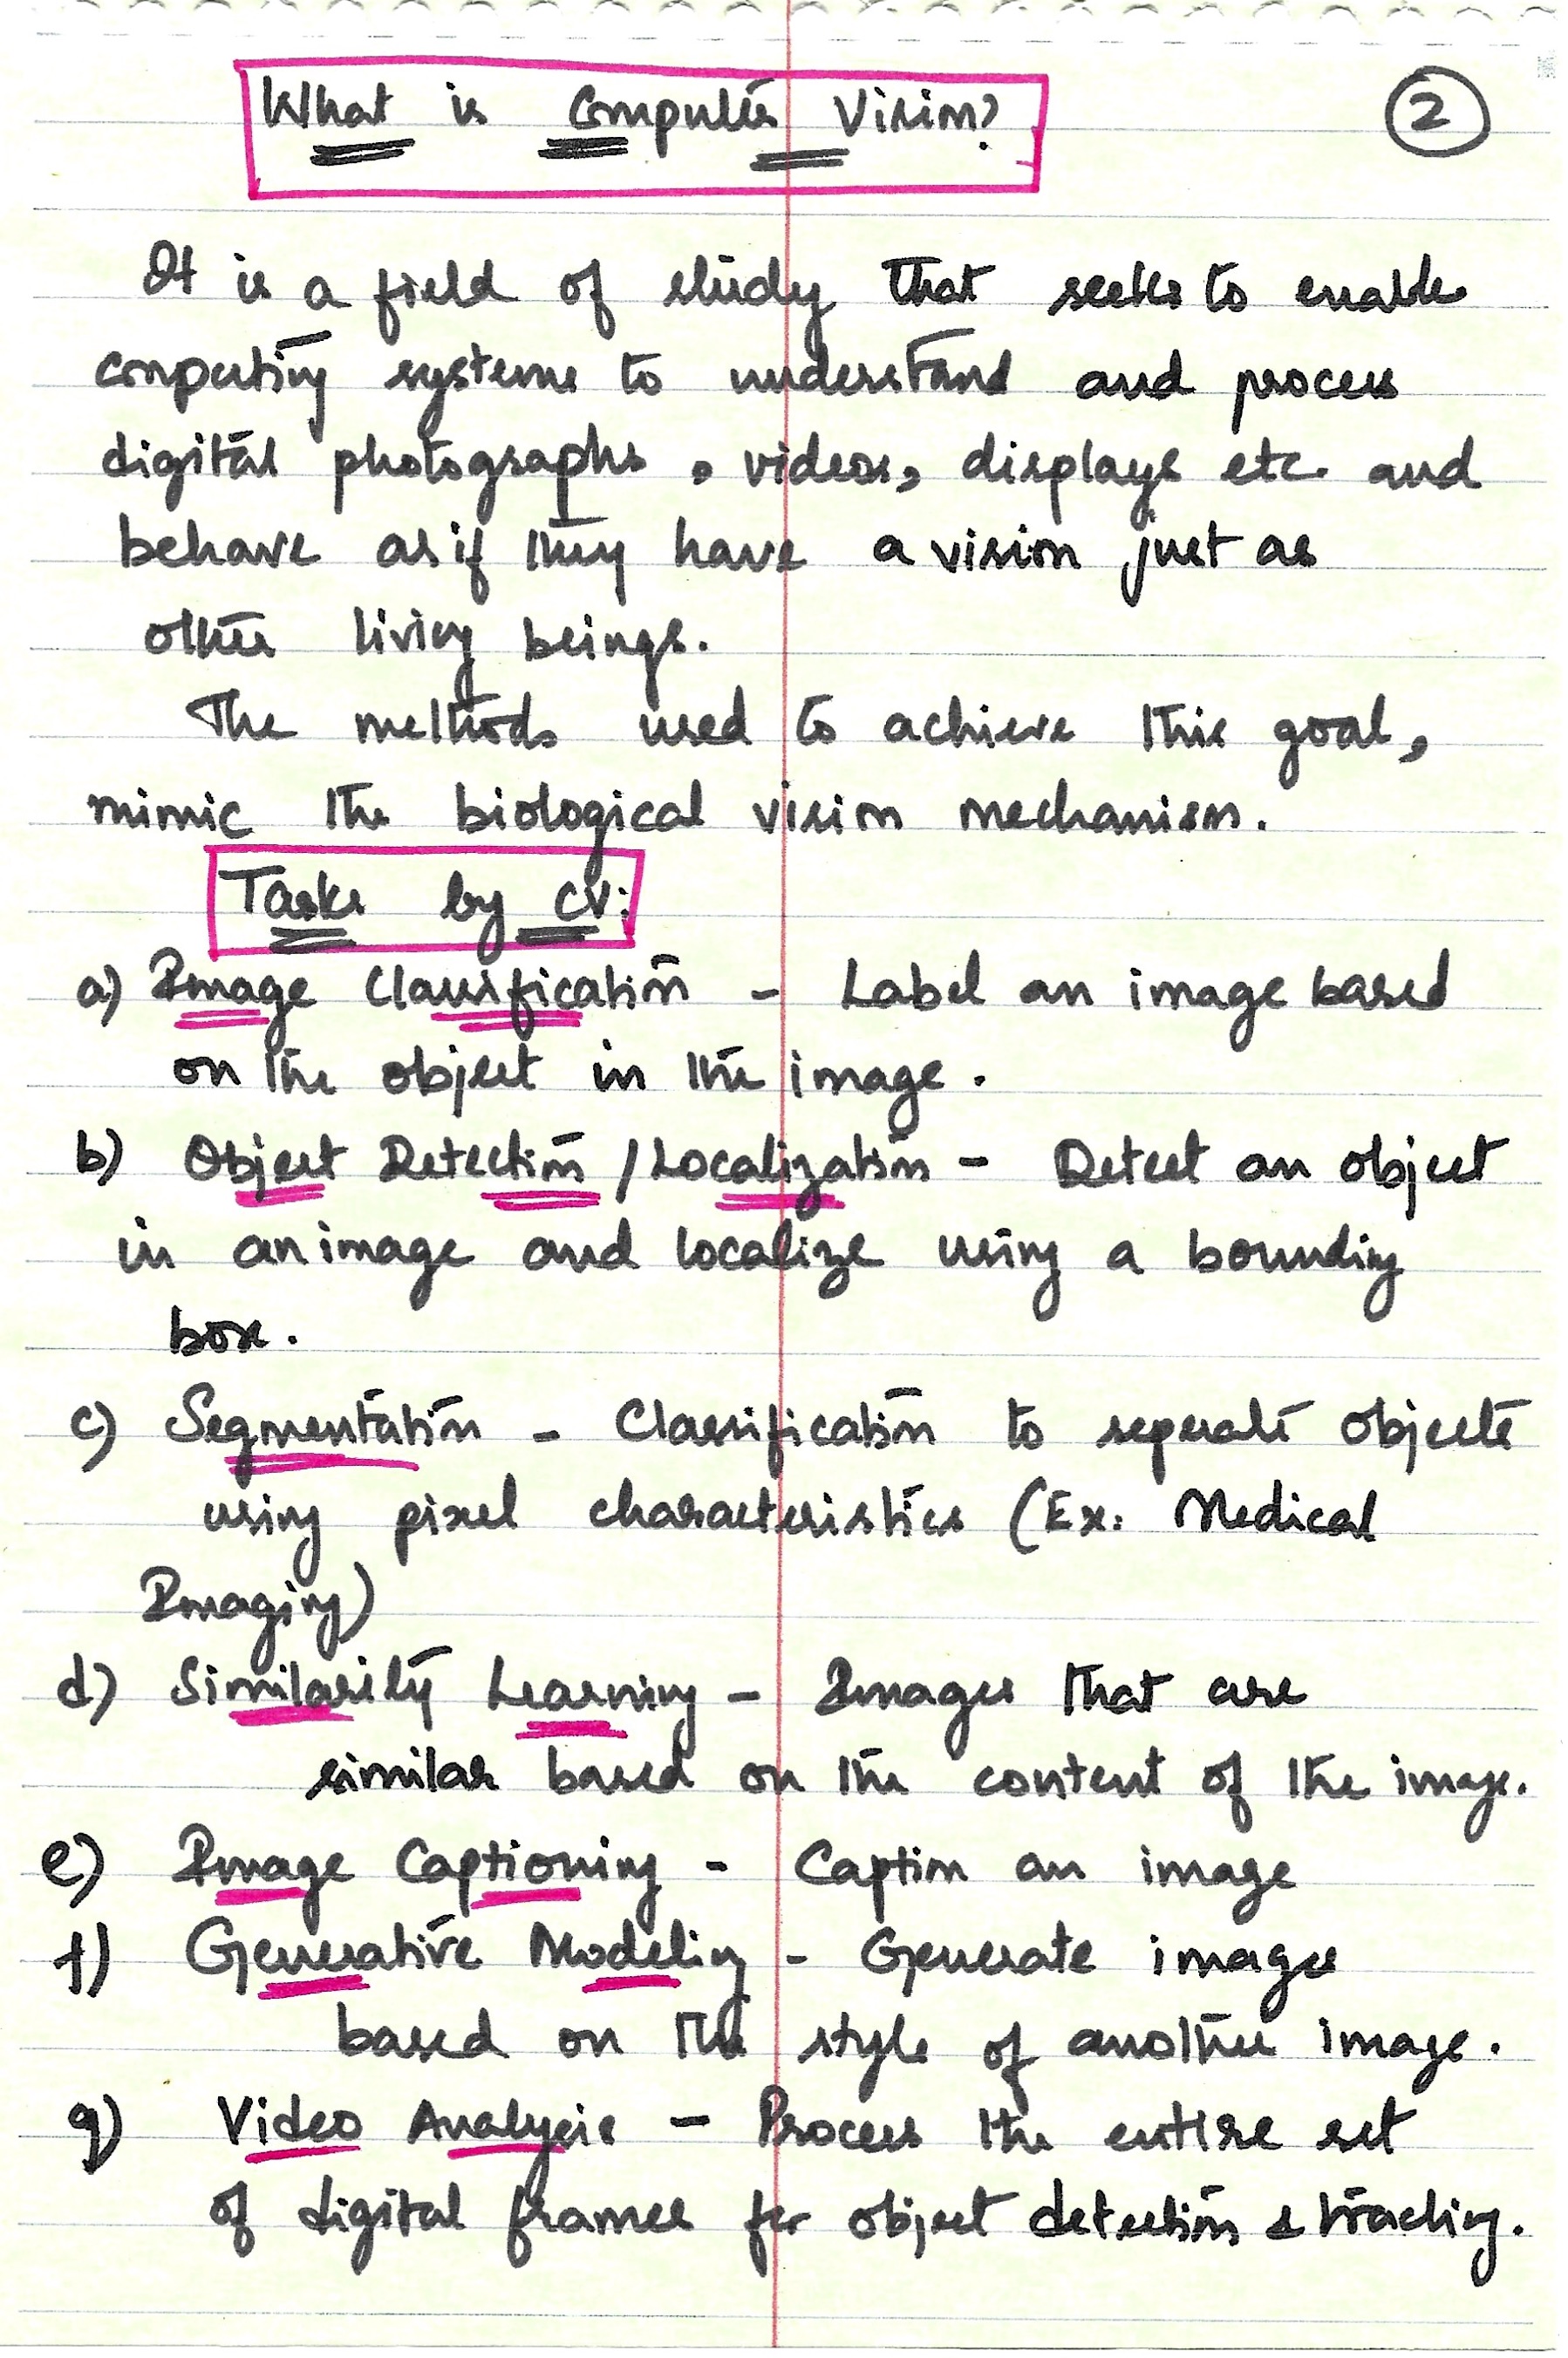 What is Computer Vision?
2
It is a field of study that seeks to enable
computing systems to understand and process
digital photographs, videos, displays etc. and
behave as if they have a vision just as
other living beings.
The methods used to achieve this goal,
mimic the biological vision mechanism.
Tasks by CV:
a) Image Classification - Label an image based
on the object in the image.
b) Object Detection / Localization - Detect an object
in an image and localize using a bounding
box.
c) Segmentation - Classification to seperate objects
using pixel characteristics (Ex: Medical
Imaging)
d) Similarity Learning - Images that are
similar based on the content of the image.
e) Image Captioning - Caption an image
f) Generative Modeling - Generate images
based on the style of another image.
g) Video Analysis - Process the entire set
of digital frames for object detection & tracking.